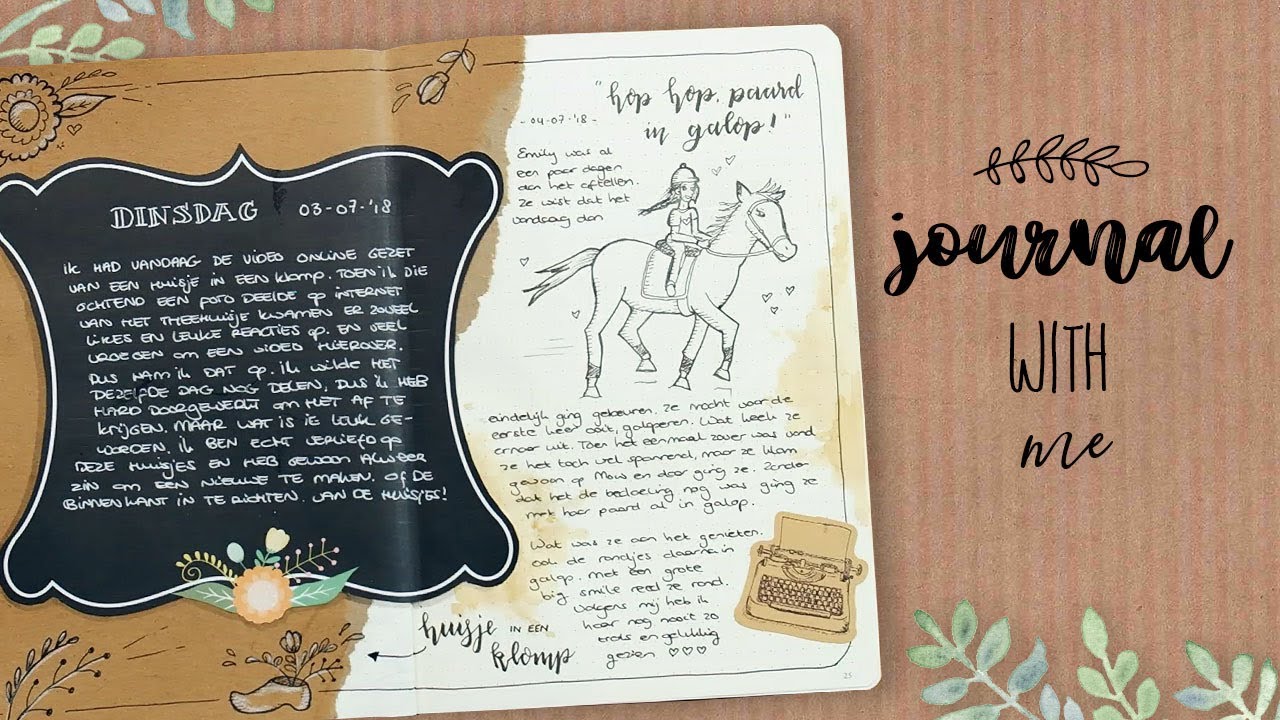 DINSDAG 03-07-'18
IK HAD VANDAAG DE VIDEO ONLINE GEZET
VAN EEN HUISJE IN EEN KLOMP. TOEN IK DIE
OCHTEND EEN FOTO DEELDE OP INTERNET
VAN HET THEEHUISJE KWAMEN ER ZOVEEL
LIKES EN LEUKE REACTIES OP. EN VEEL
VROEGEN OM EEN VIDEO HIEROVER.
DUS NAM IK DAT OP. IK WILDE HET
DEZELFDE DAG NOG DELEN, DUS IK HEB
HARD DOORGEWERKT OM HET AF TE
KRIJGEN. MAAR WAT IS IE LEUK GE-
WORDEN. IK BEN ECHT VERLIEFD OP
DEZE HUISJES EN HEB GEWOON ALWEER
ZIN OM EEN NIEUWE TE MAKEN. OF DE
BINNENKANT IN TE RICHTEN. VAN DE HUISJES!
huisje IN EEN
klomp
"hop hop, paard
in galop!"
- 04-07-'18 -
Emily was al
een paar dagen
aan het aftellen.
Ze wist dat het
woensdag dan
eindelijk ging gebeuren. Ze mocht voor de
eerste keer ooit, galoperen. Wat keek ze
ernaar uit. Toen het eenmaal zover was vond
ze het toch wel spannend, maar ze klom
gewoon op Mouw en daar ging ze. Zonder
dat het de bedoeling nog was ging ze
met haar paard al in galop.
Wat was ze aan het genieten.
Ook de rondjes daarna in
galop. Met een grote
big smile reed ze rond.
Volgens mij heb ik
haar nog nooit zo
trots en gelukkig
gezien ♡♡♡
25
journal
WITH
me